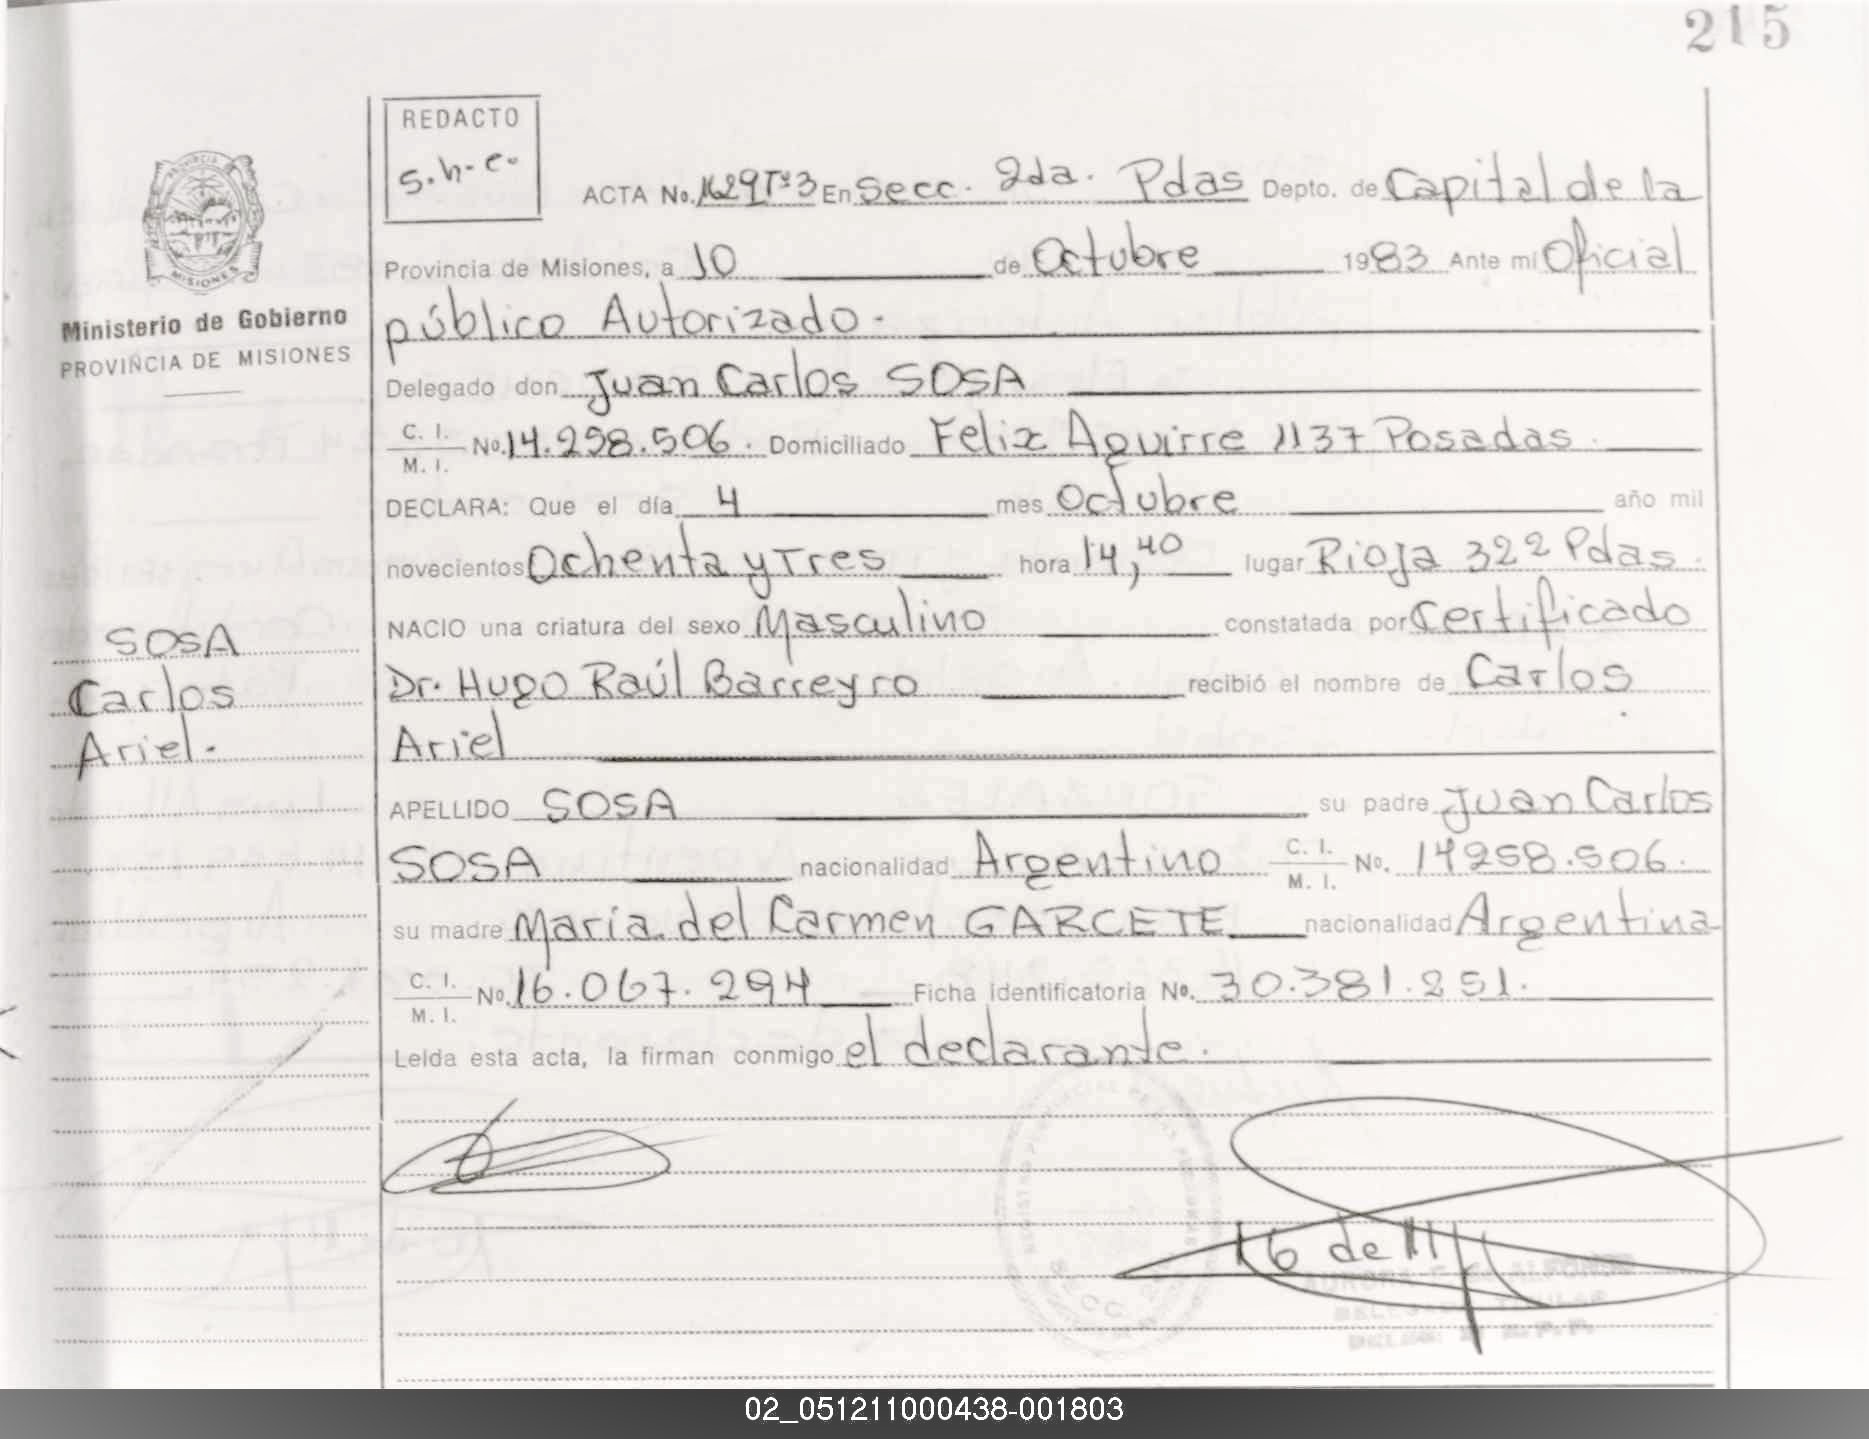 215
REDACTO
s.h.c.
ACTA No. 1629 Tº3 En Secc. 2da. Pdas Depto. de Capital de la
Provincia de Misiones, a 10 de Octubre 1983 Ante mi Oficial
público Autorizado.
PROVINCIA
MISIONES
Ministerio de Gobierno
PROVINCIA DE MISIONES
Delegado don Juan Carlos SOSA
C. I. M. I. No. 14.258.506. Domiciliado Felix Aguirre 1137 Posadas.
DECLARA: Que el día 4 mes Octubre año mil
novecientos Ochenta y Tres hora 14,40 lugar Rioja 322 Pdas.
NACIO una criatura del sexo Masculino constatada por Certificado
Dr. Hugo Raúl Barreyro recibió el nombre de Carlos
Ariel
SOSA
Carlos
Ariel.
APELLIDO SOSA su padre Juan Carlos
SOSA nacionalidad Argentino C. I. M. I. No. 14258.506.
su madre María del Carmen GARCETE nacionalidad Argentina
C. I. M. I. No. 16.067.294 Ficha identificatoria No. 30.381.251.
Leida esta acta, la firman conmigo el declarante.
SECC. 2
16 de
AURORA
02_051211000438-001803